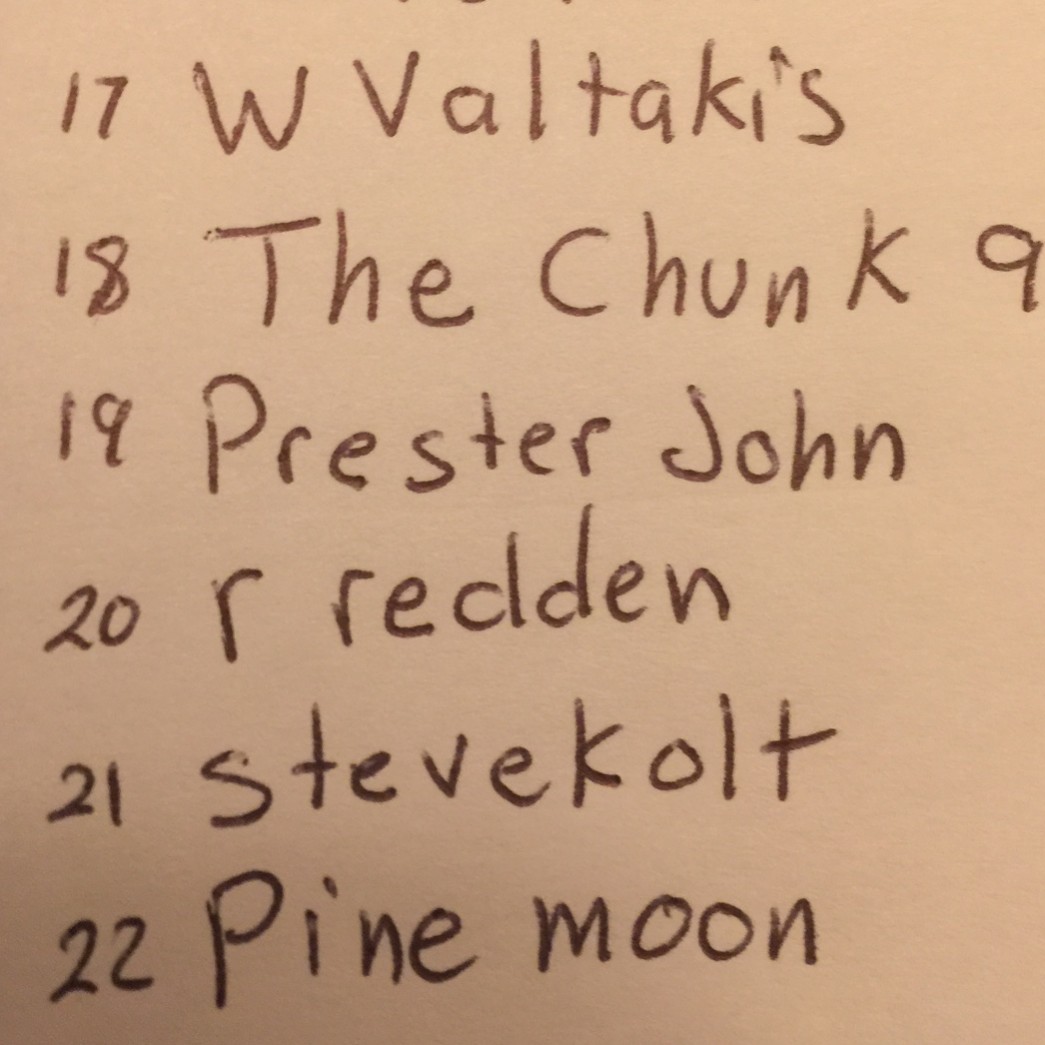 17 W Valtakis
18 The Chunk 9
19 Prester John
20 r redden
21 stevekolt
22 Pine moon